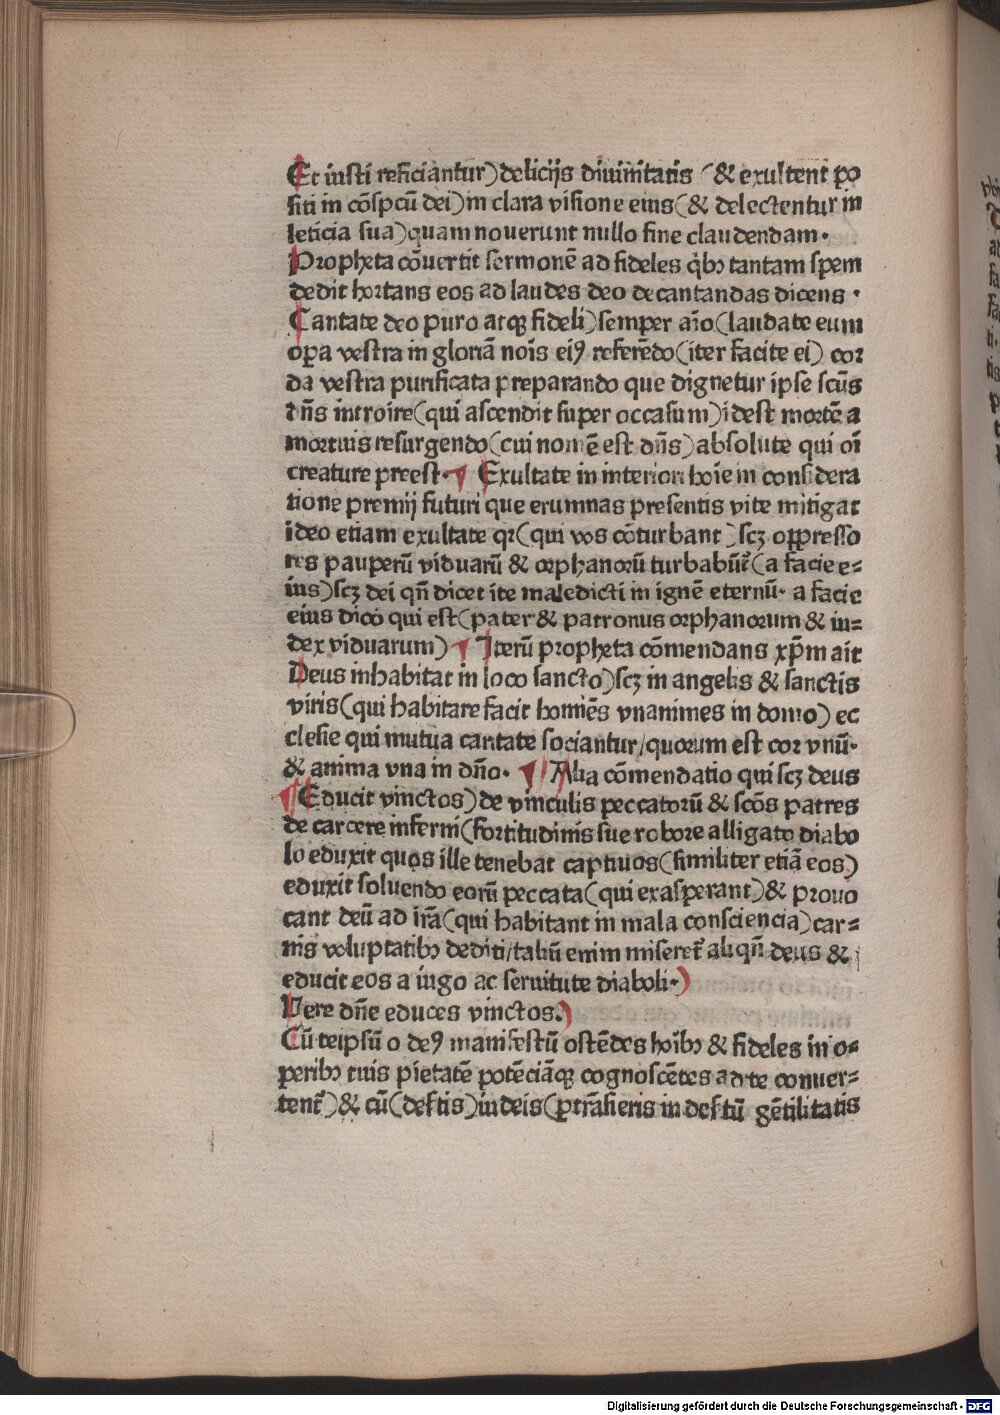 Et iusti reficiantur) delicijs diuinitatis (& exultent po
siti in cōspcū dei) in clara visione eius (& delectentur in
leticia sua) quam nouerunt nullo fine claudendam.
Propheta cōuertit sermonē ad fideles qͥbꝫ tantam spem
dedit hortans eos ad laudes deo decantandas dicens.
Cantate deo puro atqꝫ fideli) semper aīo (laudate eum
oꝑa vestra in gloriā noīs eiꝰ referēdo (iter facite ei) cor
da vestra purificata preparando que dignetur ipse scūs
dn̄s introire (qui ascendit super occasum) idest mortē a
mortuis resurgendo (cui nomē est dn̄s) absolute qui oī
creature preest. ¶ Exultate in interiori hoīe in considera
tione premij futuri que erumnas presentis vite mitigat
ideo etiam exultate qꝛ (qui vos cōturbant) scꝫ oppresso
res pauperū viduarū & orphanorū turbabūt᷑ (a facie e=
ius) scꝫ dei qn̄ dicet ite maledicti in ignē eternū. a facie
eius dico qui est (pater & patronus orphanorum & in=
dex viduarum) ¶ Iterū propheta cōmendans xp̄m ait
Deus inhabitat in loco sancto) scꝫ in angelis & sanctis
viris (qui habitare facit homīes vnanimes in domo) ec
clesie qui mutua caritate sociantur/quorum est cor vnū.
& anima vna in dn̄o. ¶ Alia cōmendatio qui scꝫ deus
¶ Educit vinctos) de vinculis peccatorū & scōs patres
de carcere inferni (fortitudinis sue robore alligato diabo
lo eduxit quos ille tenebat captiuos (similiter etiā eos)
eduxit soluendo eorū peccata (qui exasperant) & prouo
cant deū ad irā (qui habitant in mala consciencia) car=
nis voluptatibꝫ dediti/taliū enim miseret᷑ aliqn̄ deus &
educit eos a iugo ac seruitute diaboli.)
Vere dn̄e educes vinctos.)
Cū teipsū o deꝰ manifestū ostēdes hoībꝫ & fideles in o=
peribꝫ tuis pietatē potēciāqꝫ cognoscētes ad te conuer=
tent᷑) & cū (desertis) iudeis (ꝑtrāsieris in desertū gētilitatis